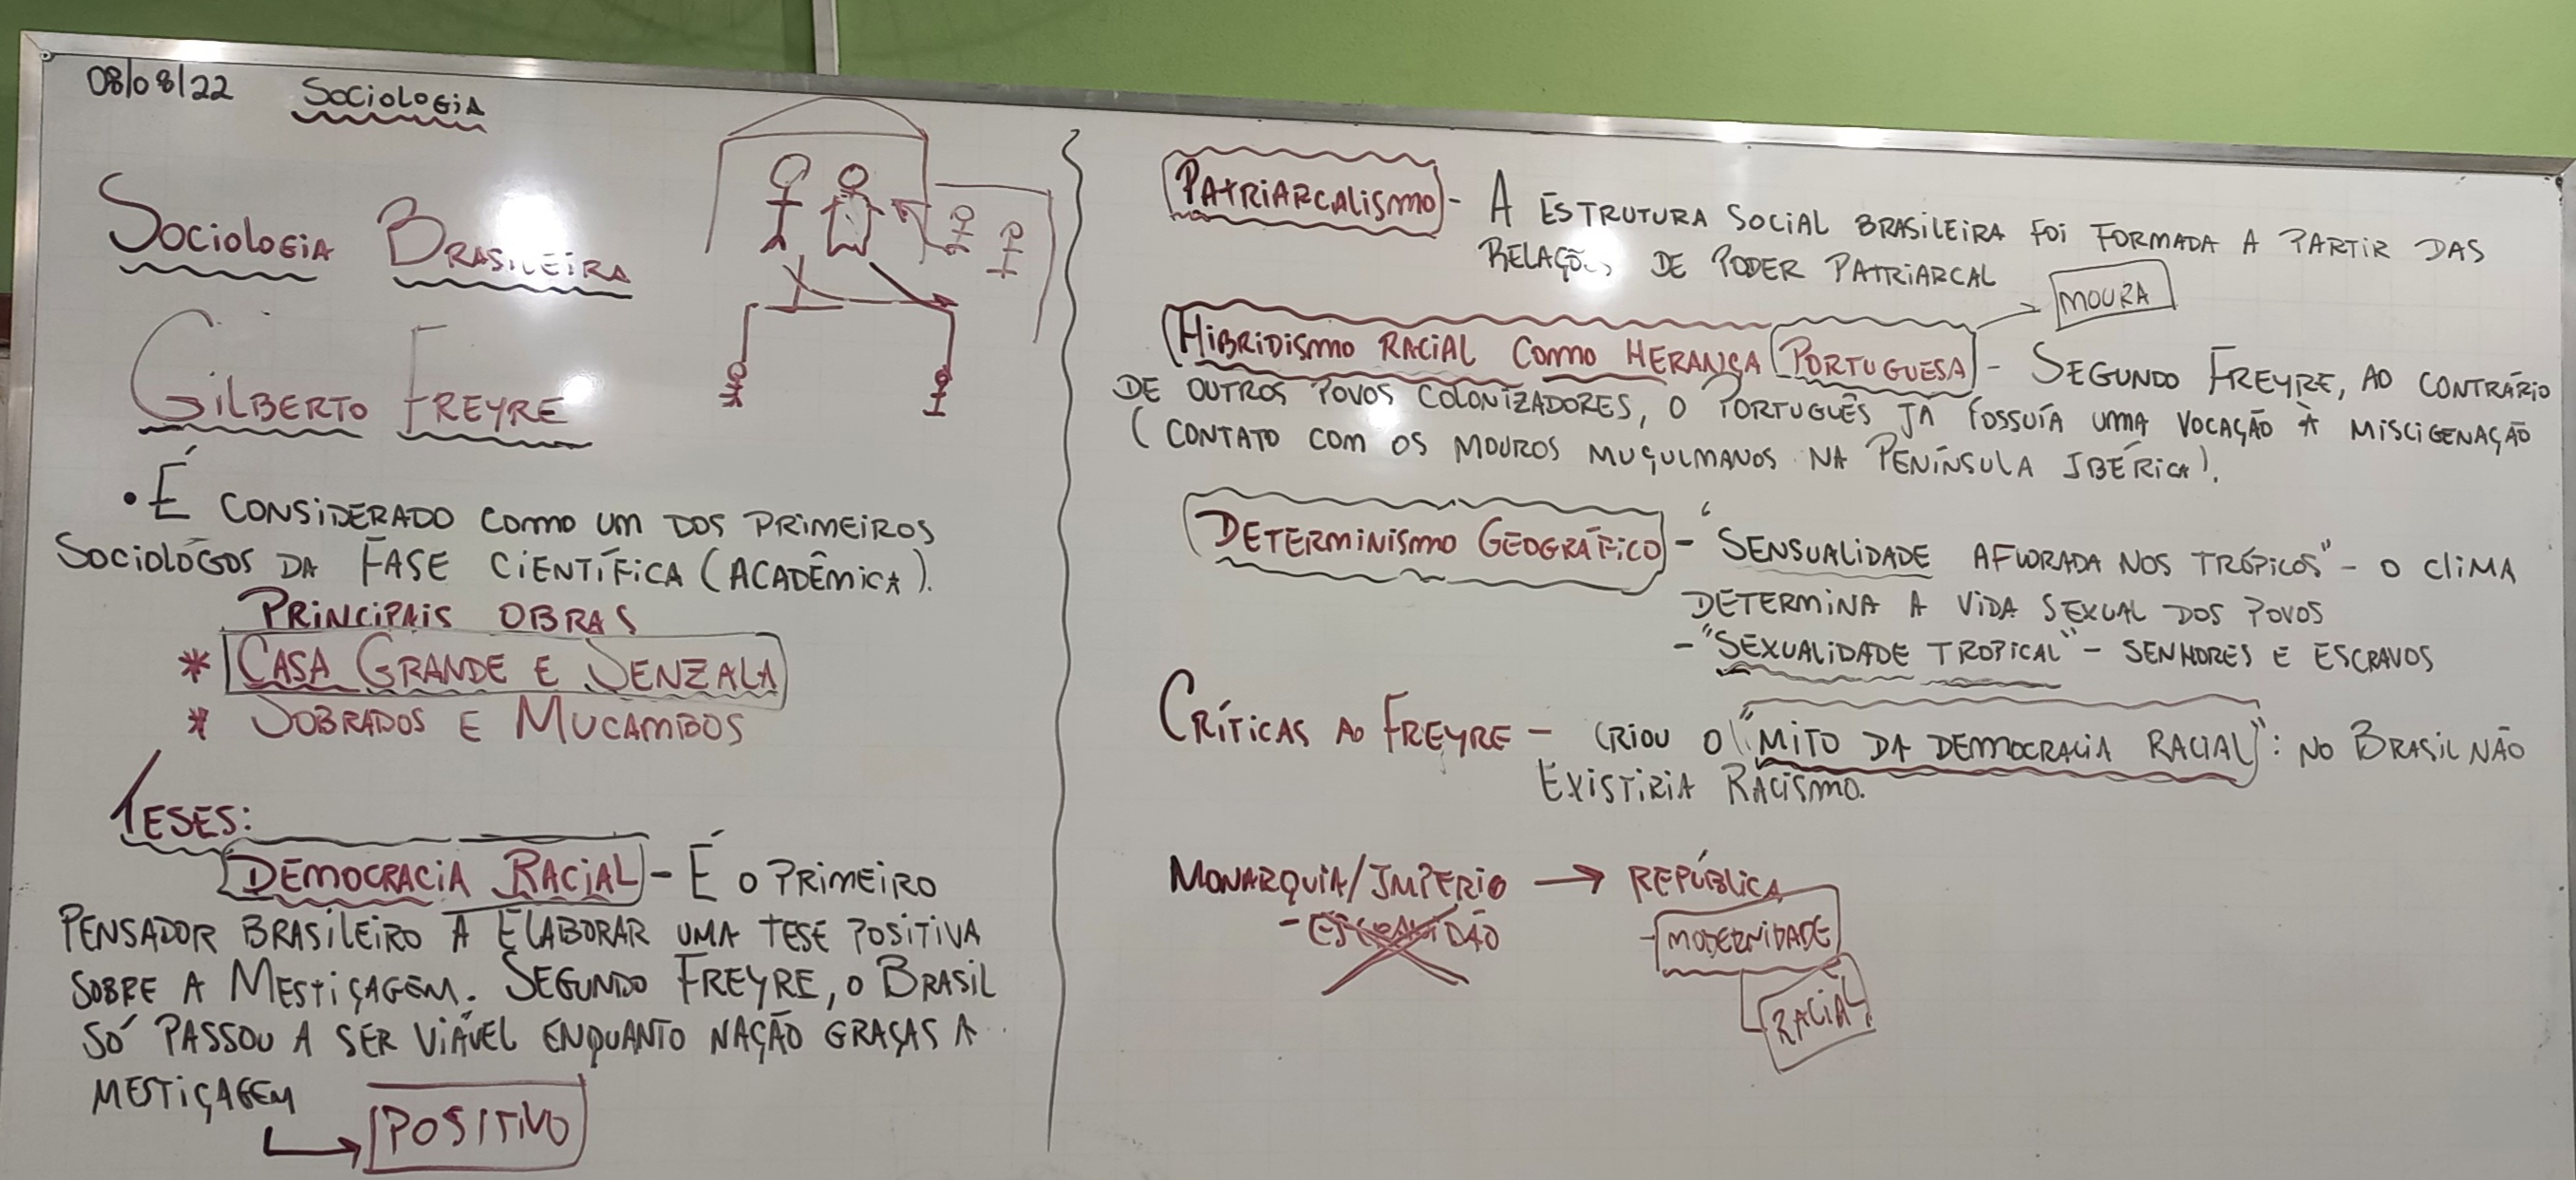 08/08/22 Sociologia
Sociologia Brasileira
Gilberto Freyre
• É considerado como um dos primeiros
sociológos da fase científica (acadêmica).
Principais obras
* Casa Grande e Senzala
* Sobrados e Mucambos
Teses:
Democracia Racial - É o primeiro
pensador brasileiro a elaborar uma tese positiva
sobre a mestiçagem. Segundo Freyre, o Brasil
só passou a ser viável enquanto nação graças a
mestiçagem
Positivo
Patriarcalismo - A estrutura social brasileira foi formada a partir das
relações de poder patriarcal
Moura
Hibridismo racial como herança portuguesa - Segundo Freyre, ao contrário
de outros povos colonizadores, o português já possuía uma vocação à miscigenação
(contato com os mouros muçulmanos na Península Ibérica).
Determinismo Geográfico - "Sensualidade aflorada nos trópicos" - o clima
determina a vida sexual dos povos
- "Sexualidade tropical" - senhores e escravos
Críticas ao Freyre - criou o "mito da democracia racial": no Brasil não
existiria racismo.
Monarquia/Império → República
- Escravidão - Modernidade
Racial